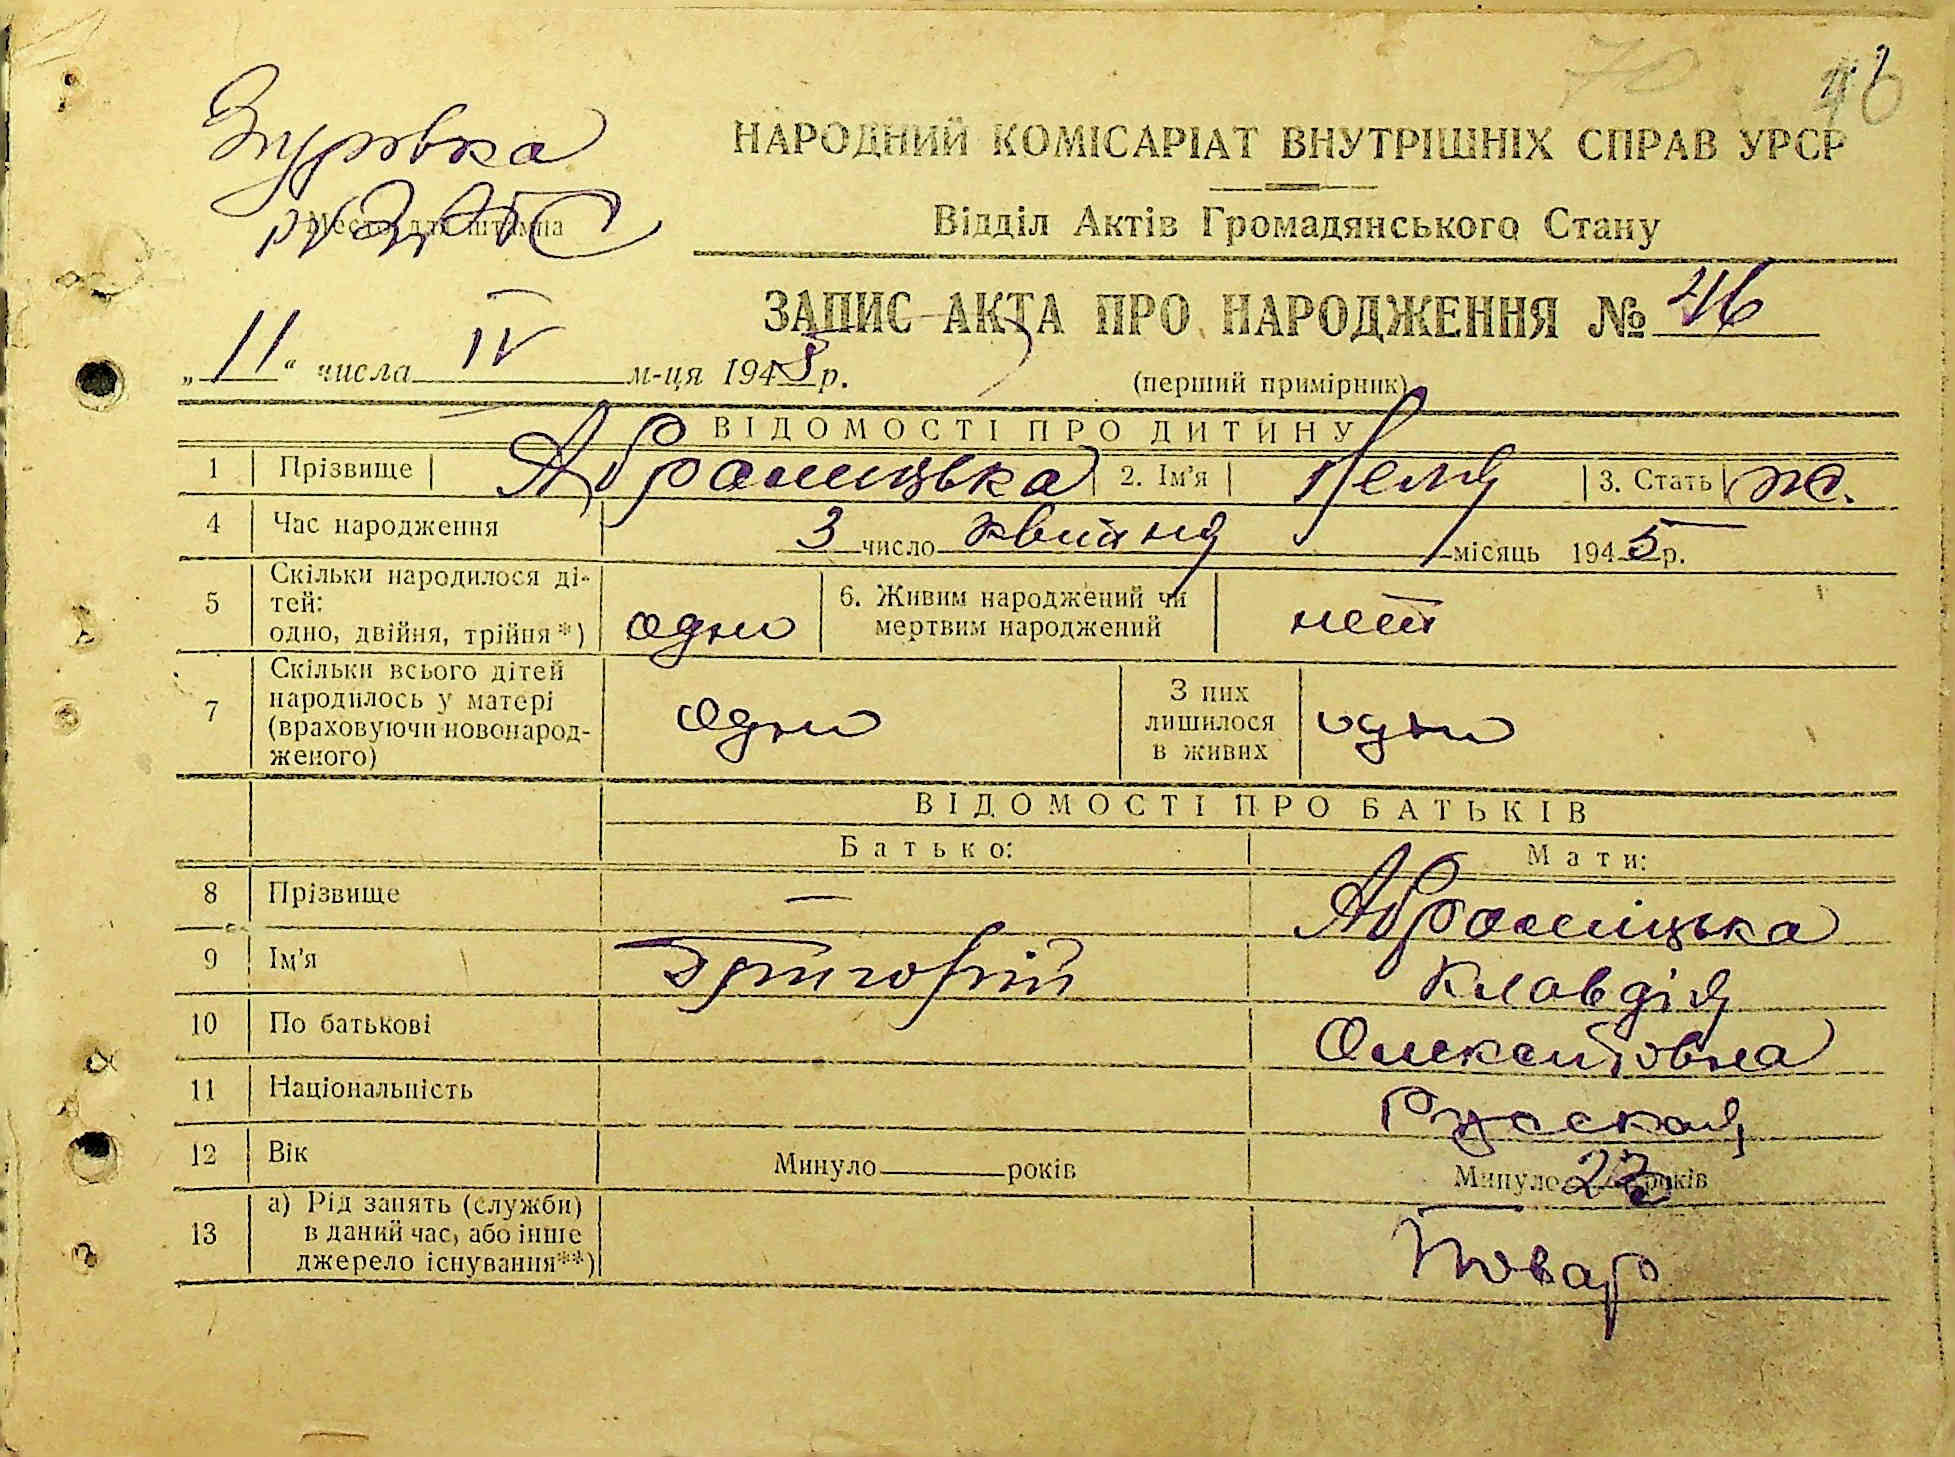 70 46
Згуровка
НАРОДНИЙ КОМІСАРІАТ ВНУТРІШНІХ СПРАВ УРСР
Место для штампа
РЗАГС
Відділ Актів Громадянського Стану
ЗАПИС АКТА ПРО НАРОДЖЕННЯ № 46
„11“ числа IV м-ця 1945 р.
(перший примірник)
ВІДОМОСТІ ПРО ДИТИНУ
1 Прізвище Абрамицька 2. Ім'я 3. Стать ж.
4 Час народження 3 число квитня місяць 1945 р.
5 Скільки народилося ді-
тей:
одно, двійня, трійня*) одно 6. Живим народжений чи
мертвим народжений нет
7 Скільки всього дітей
народилось у матері
(враховуючи новонарод-
женого) одно З них
лишилося
в живих одно
ВІДОМОСТІ ПРО БАТЬКІВ
Батько: Мати:
8 Прізвище — Абраміцька
9 Ім'я Григорий Клавдія
10 По батькові
11 Національність Русская
12 Вік Минуло років Минуло 22 років
13 а) Рід занять (служби)
в даний час, або інше
джерело існування**) Повар